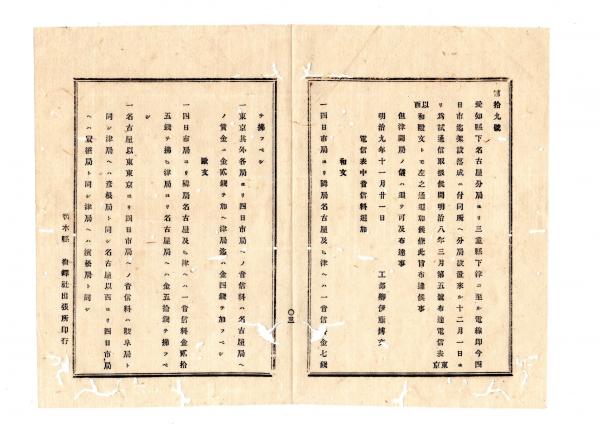 第拾九號
愛知縣下名古屋分局ヨリ三重縣下津ニ至ル電線即今四
日市迄架設落成ニ付同所ヘ分局設置來ル十二月一日ヨ
リ爲試通信取扱候間明治八年三月第五號布達電信表東京
以西和歐文トモ左之通追加候條此旨布達候事
但津開局ノ儀ハ追テ可及布達事
明治九年十一月廿一日 工部卿伊藤博文
電信表中音信料追加
和文
一四日市局ヨリ隣局名古屋及ヒ津ヘハ一音信料金七錢
〇三
テ拂フベシ
一東京其外各局ヨリ四日市局ヘノ音信料ハ名古屋局ヘ
ノ賃金ニ金貳錢ヲ加ヘ津局迄ハ金四錢ヲ加フベシ
歐文
一四日市局ヨリ隣局名古屋及ヒ津ヘハ一音信料金貳拾
五錢ヲ拂ヒ津局ヨリ名古屋局ヘハ金五拾錢ヲ拂フベ
シ
一名古屋以東東京ヨリ四日市局ヘノ音信料ハ岐阜局ト
同シ津局ヘハ彦根局ト同シ名古屋以西ヨリ四日市局
ヘハ 局ト同シ津局ヘハ濱松局ト同シ
木縣 社出張所印行